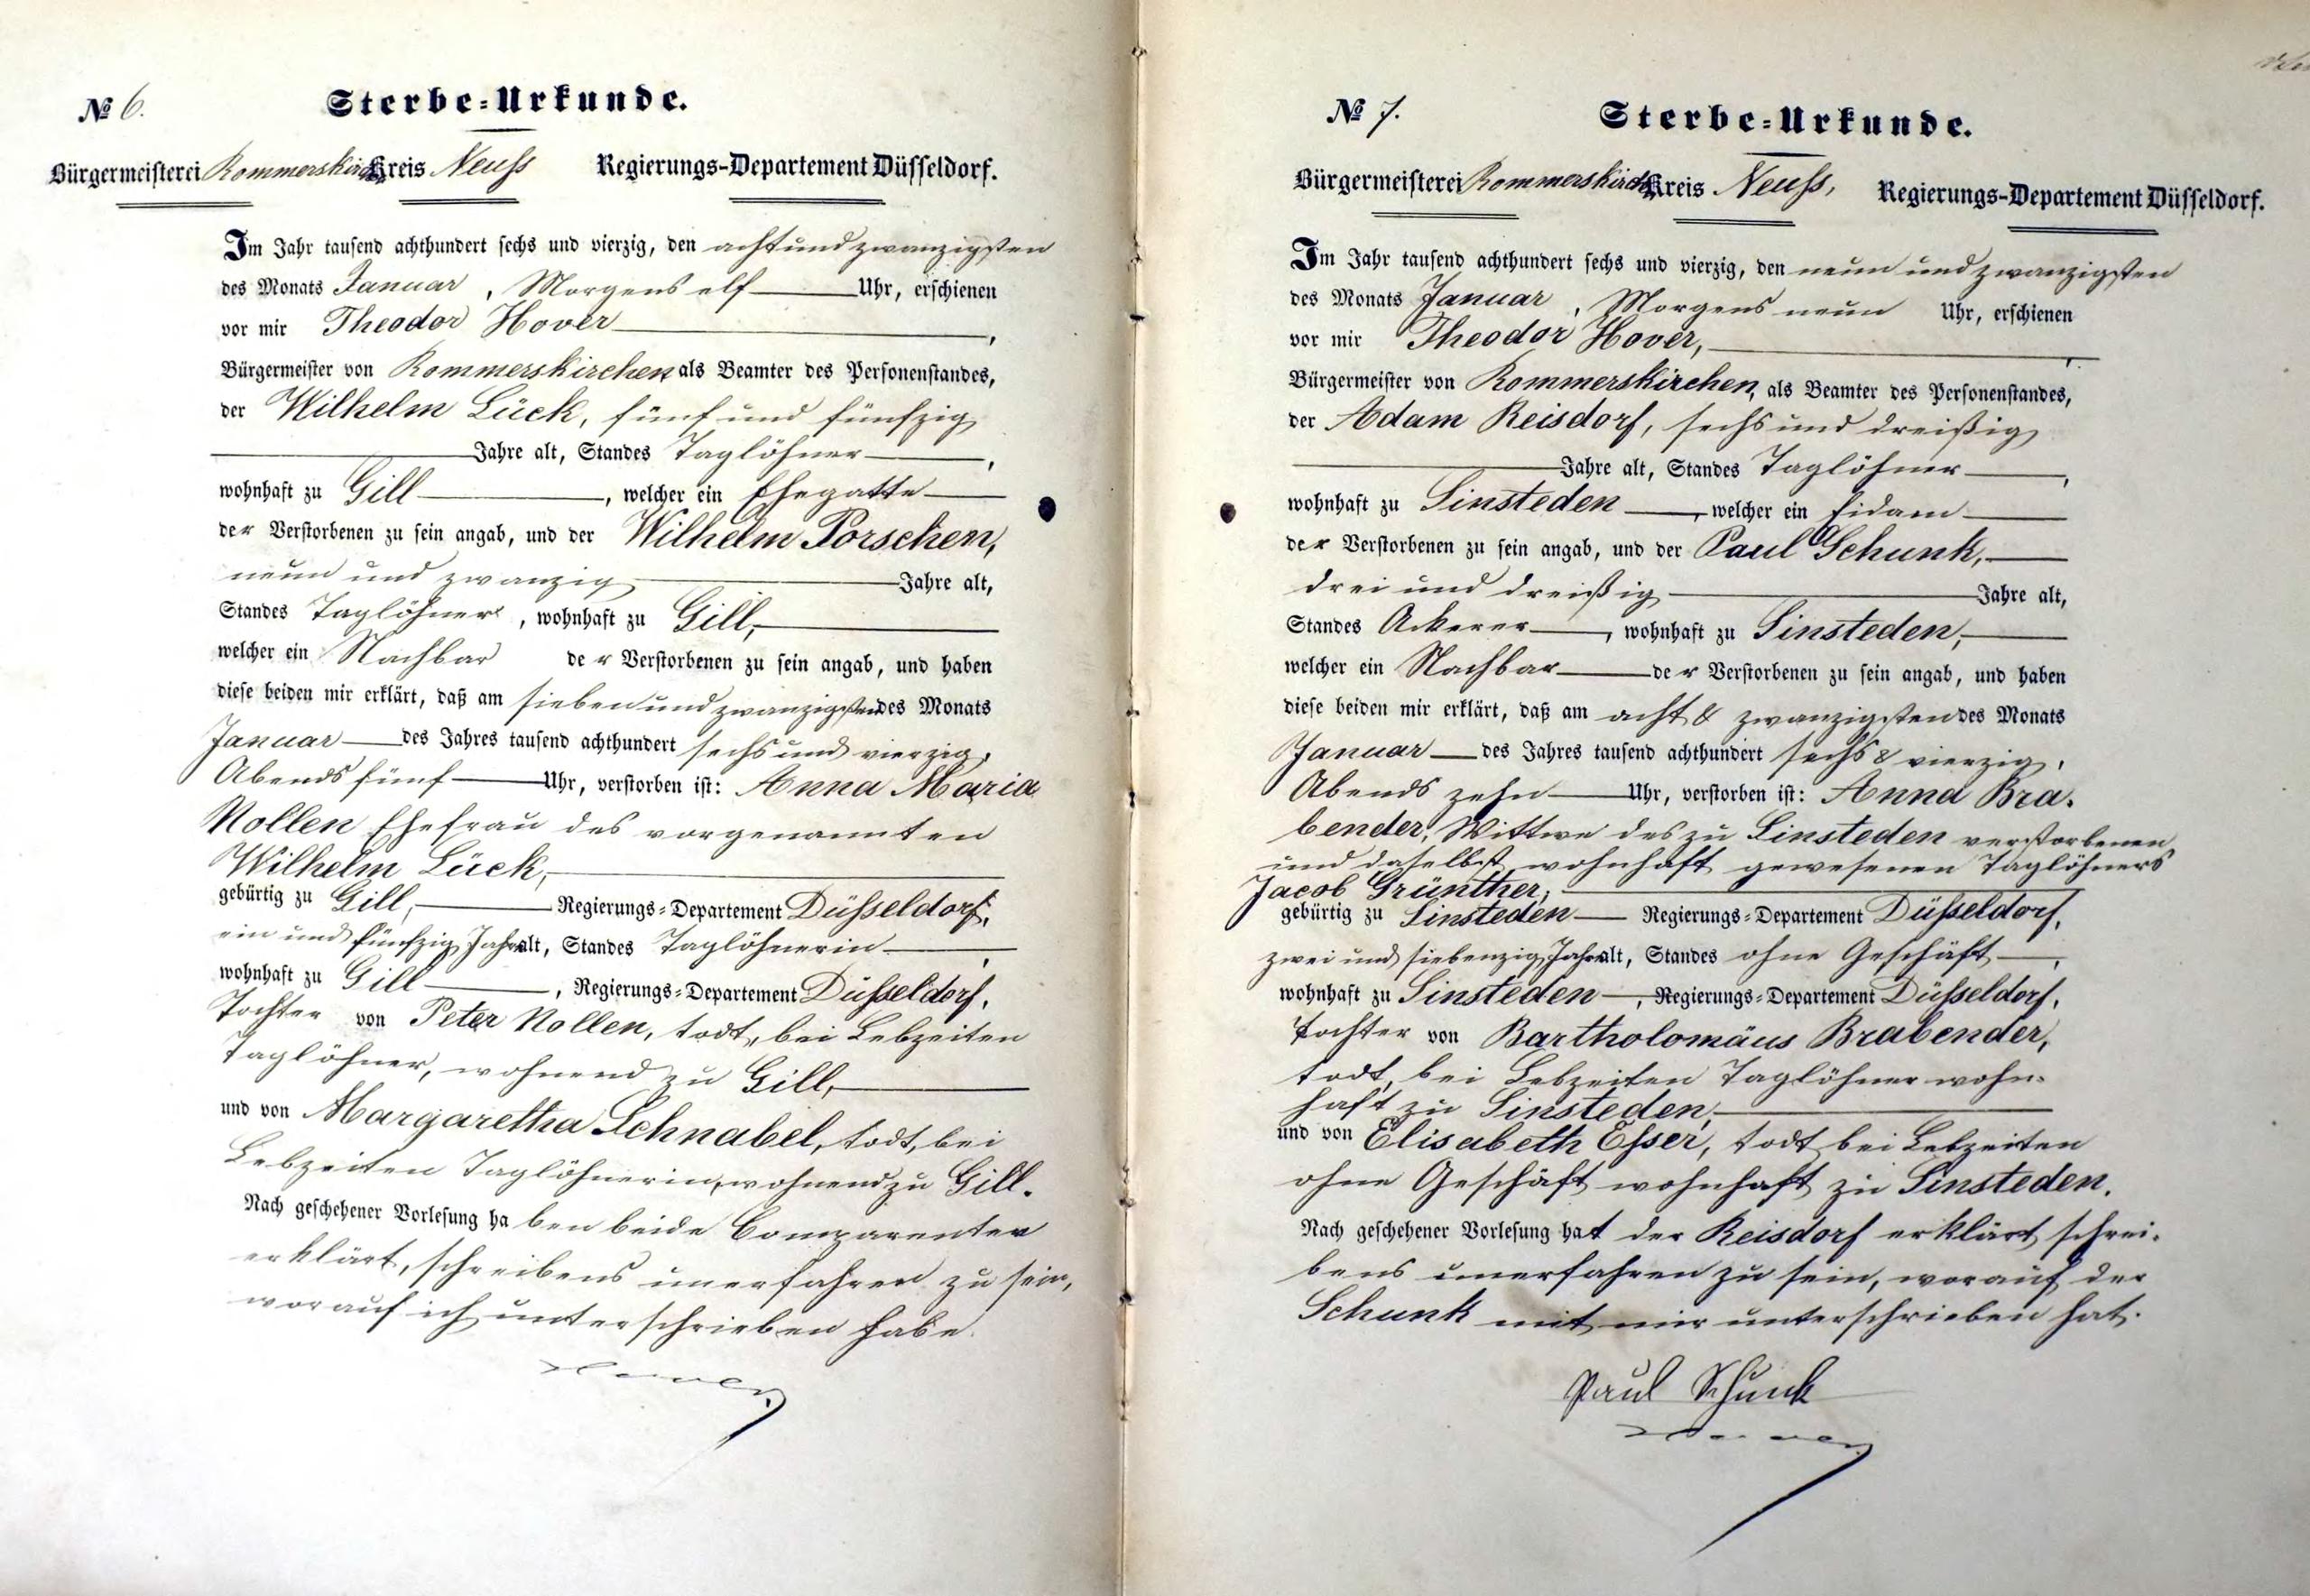 № 6.
Sterbe=Urkunde.
Bürgermeisterei Rommerskirchen Kreis Neuss Regierungs-Departement Düsseldorf.
Im Jahr tausend achthundert sechs und vierzig, den acht und zwanzigsten
des Monats Januar, Morgens elf Uhr, erschienen
vor mir Theodor Hover,
Bürgermeister von Rommerskirchen als Beamter des Personenstandes,
der Wilhelm Lück, fünf und fünfzig
Jahre alt, Standes Taglöhner,
wohnhaft zu Gill, welcher ein Ehegatte
der Verstorbenen zu sein angab, und der Wilhelm Porschen,
neun und zwanzig Jahre alt,
Standes Taglöhner, wohnhaft zu Gill,
welcher ein Nachbar der Verstorbenen zu sein angab, und haben
diese beiden mir erklärt, daß am sieben und zwanzigsten des Monats
Januar des Jahres tausend achthundert sechs und vierzig,
Abends fünf Uhr, verstorben ist: Anna Maria
Nollen Ehefrau des vorgenannten
Wilhelm Lück,
gebürtig zu Gill, Regierungs=Departement Düsseldorf,
ein und fünfzig Jahre alt, Standes Taglöhnerin,
wohnhaft zu Gill, Regierungs=Departement Düsseldorf,
Tochter von Peter Nollen, todt, bei Lebzeiten
Taglöhner, wohnend zu Gill,
und von Margaretha Schnabel, todt, bei
Lebzeiten Taglöhnerin, wohnend zu Gill.
Nach geschehener Vorlesung haben beide Comparenten
erklärt, schreibens unerfahren zu sein,
worauf ich unterschrieben habe.
Hover
№ 7.
Sterbe=Urkunde.
Bürgermeisterei Rommerskirchen Kreis Neuss, Regierungs-Departement Düsseldorf.
Im Jahr tausend achthundert sechs und vierzig, den neun und zwanzigsten
des Monats Januar, Morgens neun Uhr, erschienen
vor mir Theodor Hover,
Bürgermeister von Rommerskirchen, als Beamter des Personenstandes,
der Adam Reisdorf, sechs und dreißig
Jahre alt, Standes Taglöhner,
wohnhaft zu Sinsteden, welcher ein Eidam
der Verstorbenen zu sein angab, und der Paul Schunk,
drei und dreißig Jahre alt,
Standes Ackerer, wohnhaft zu Sinsteden,
welcher ein Nachbar der Verstorbenen zu sein angab, und haben
diese beiden mir erklärt, daß am acht & zwanzigsten des Monats
Januar des Jahres tausend achthundert sechs & vierzig,
Abends zehn Uhr, verstorben ist: Anna Bra-
bender, Wittwe des zu Sinsteden verstorbenen
und daselbst wohnhaft gewesenen Taglöhners
Jacob Grünther,
gebürtig zu Sinsteden Regierungs=Departement Düsseldorf,
zwei und siebenzig Jahre alt, Standes ohne Geschäft,
wohnhaft zu Sinsteden, Regierungs=Departement Düsseldorf,
Tochter von Bartholomäus Brabender,
todt, bei Lebzeiten Taglöhner wohn-
haft zu Sinsteden,
und von Elisabeth Esser, todt bei Lebzeiten
ohne Geschäft wohnhaft zu Sinsteden.
Nach geschehener Vorlesung hat der Reisdorf erklärt, schrei-
bens unerfahren zu sein, worauf der
Schunk mit mir unterschrieben hat.
Paul Schunk
Hover